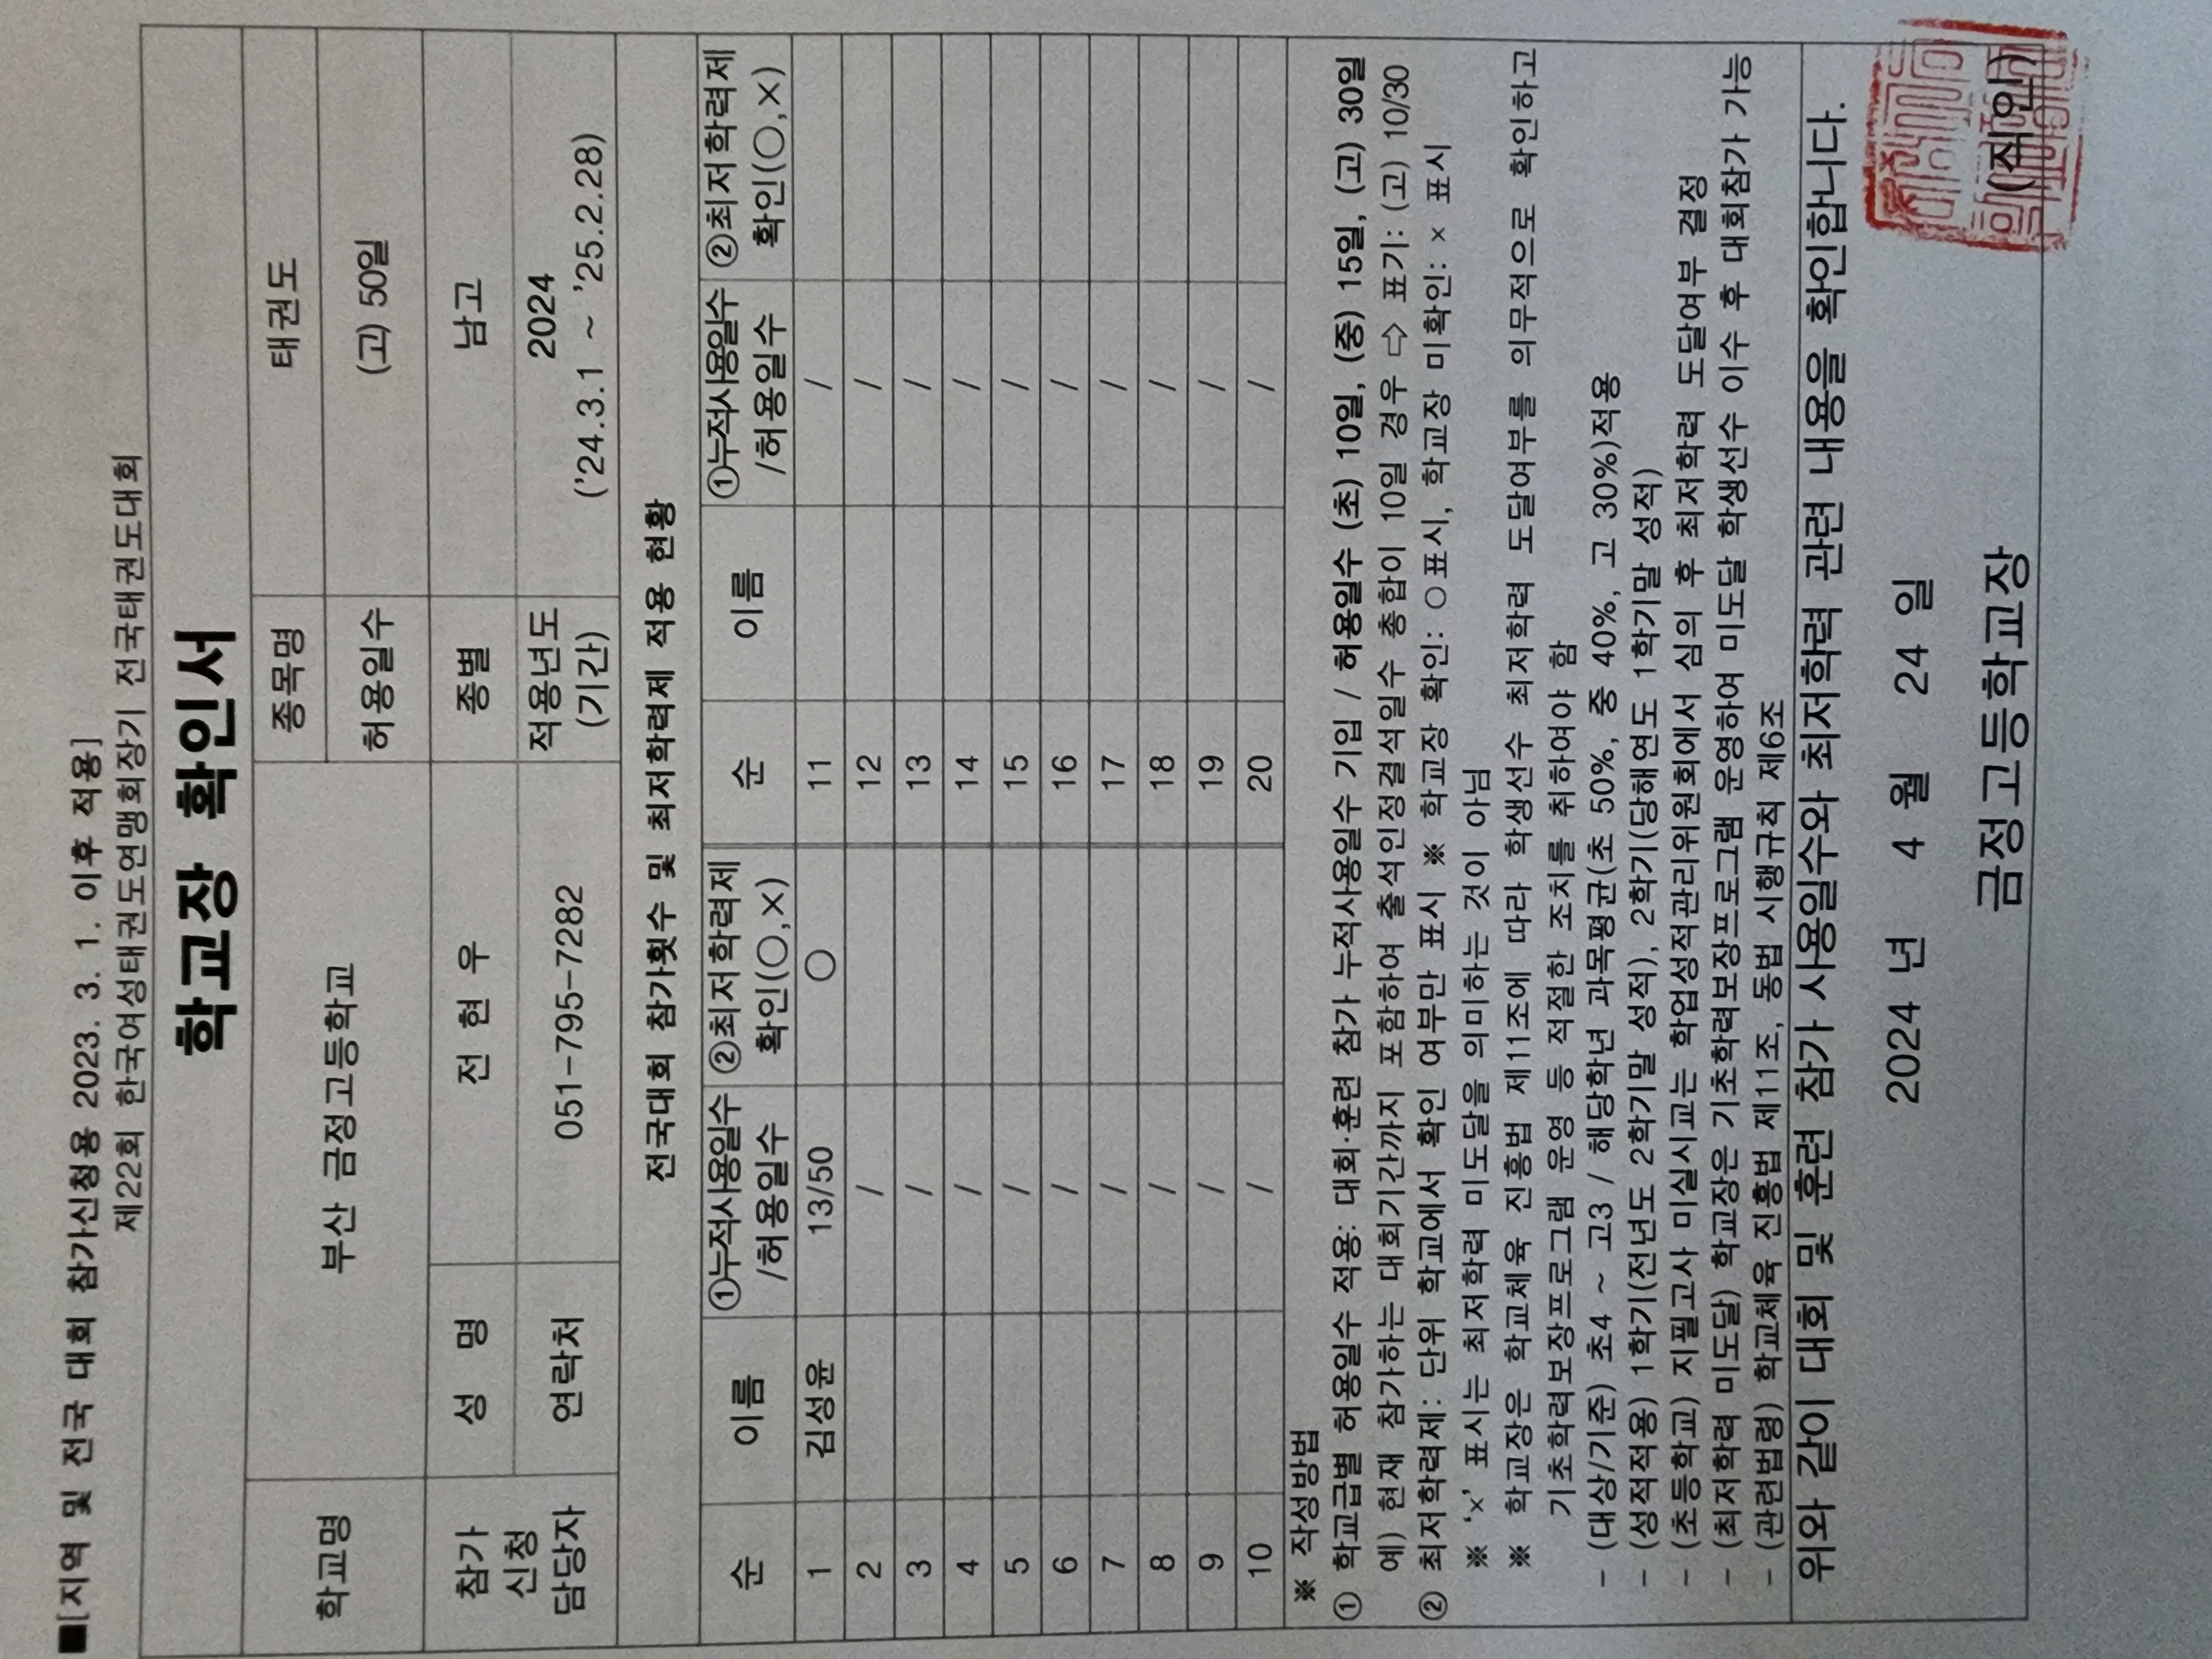 ■[지역 및 전국 대회 참가신청용 2023. 3. 1. 이후 적용]
제22회 한국여성태권도연맹회장기 전국태권도대회
학교장 확인서
학교명 부산 금정고등학교 종목명 태권도
허용일수 (고) 50일
참가
신청
담당자
성 명 전 현 우 종별 남고
연락처 051-795-7282 적용년도
(기간)
2024
('24.3.1 ~ '25.2.28)
전국대회 참가횟수 및 최저학력제 적용 현황
순 이름 ①누적사용일수
/허용일수
②최저학력제
확인(○,×)
순 이름 ①누적사용일수
/허용일수
②최저학력제
확인(○,×)
1 김성윤 13/50 ○ 11 /
2 / 12 /
3 / 13 /
4 / 14 /
5 / 15 /
6 / 16 /
7 / 17 /
8 / 18 /
9 / 19 /
10 / 20 /
※ 작성방법
① 학교급별 허용일수 적용: 대회·훈련 참가 누적사용일수 기입 / 허용일수 (초) 10일, (중) 15일, (고) 30일
예) 현재 참가하는 대회기간까지 포함하여 출석인정결석일수 총합이 10일 경우 ⇨ 표기: (고) 10/30
② 최저학력제: 단위 학교에서 확인 여부만 표시 ※ 학교장 확인: ○표시, 학교장 미확인: × 표시
※ '×' 표시는 최저학력 미도달을 의미하는 것이 아님
※ 학교장은 학교체육 진흥법 제11조에 따라 학생선수 최저학력 도달여부를 의무적으로 확인하고
기초학력보장프로그램 운영 등 적절한 조치를 취하여야 함
- (대상/기준) 초4 ~ 고3 / 해당학년 과목평균(초 50%, 중 40%, 고 30%)적용
- (성적적용) 1학기(전년도 2학기말 성적), 2학기(당해연도 1학기말 성적)
- (초등학교) 지필고사 미실시교는 학업성적관리위원회에서 심의 후 최저학력 도달여부 결정
- (최저학력 미도달) 학교장은 기초학력보장프로그램 운영하여 미도달 학생선수 이수 후 대회참가 가능
- (관련법령) 학교체육 진흥법 제11조, 동법 시행규칙 제6조
위와 같이 대회 및 훈련 참가 사용일수와 최저학력 관련 내용을 확인합니다.
2024 년 4 월 24 일
금정고등학교장 (직인)